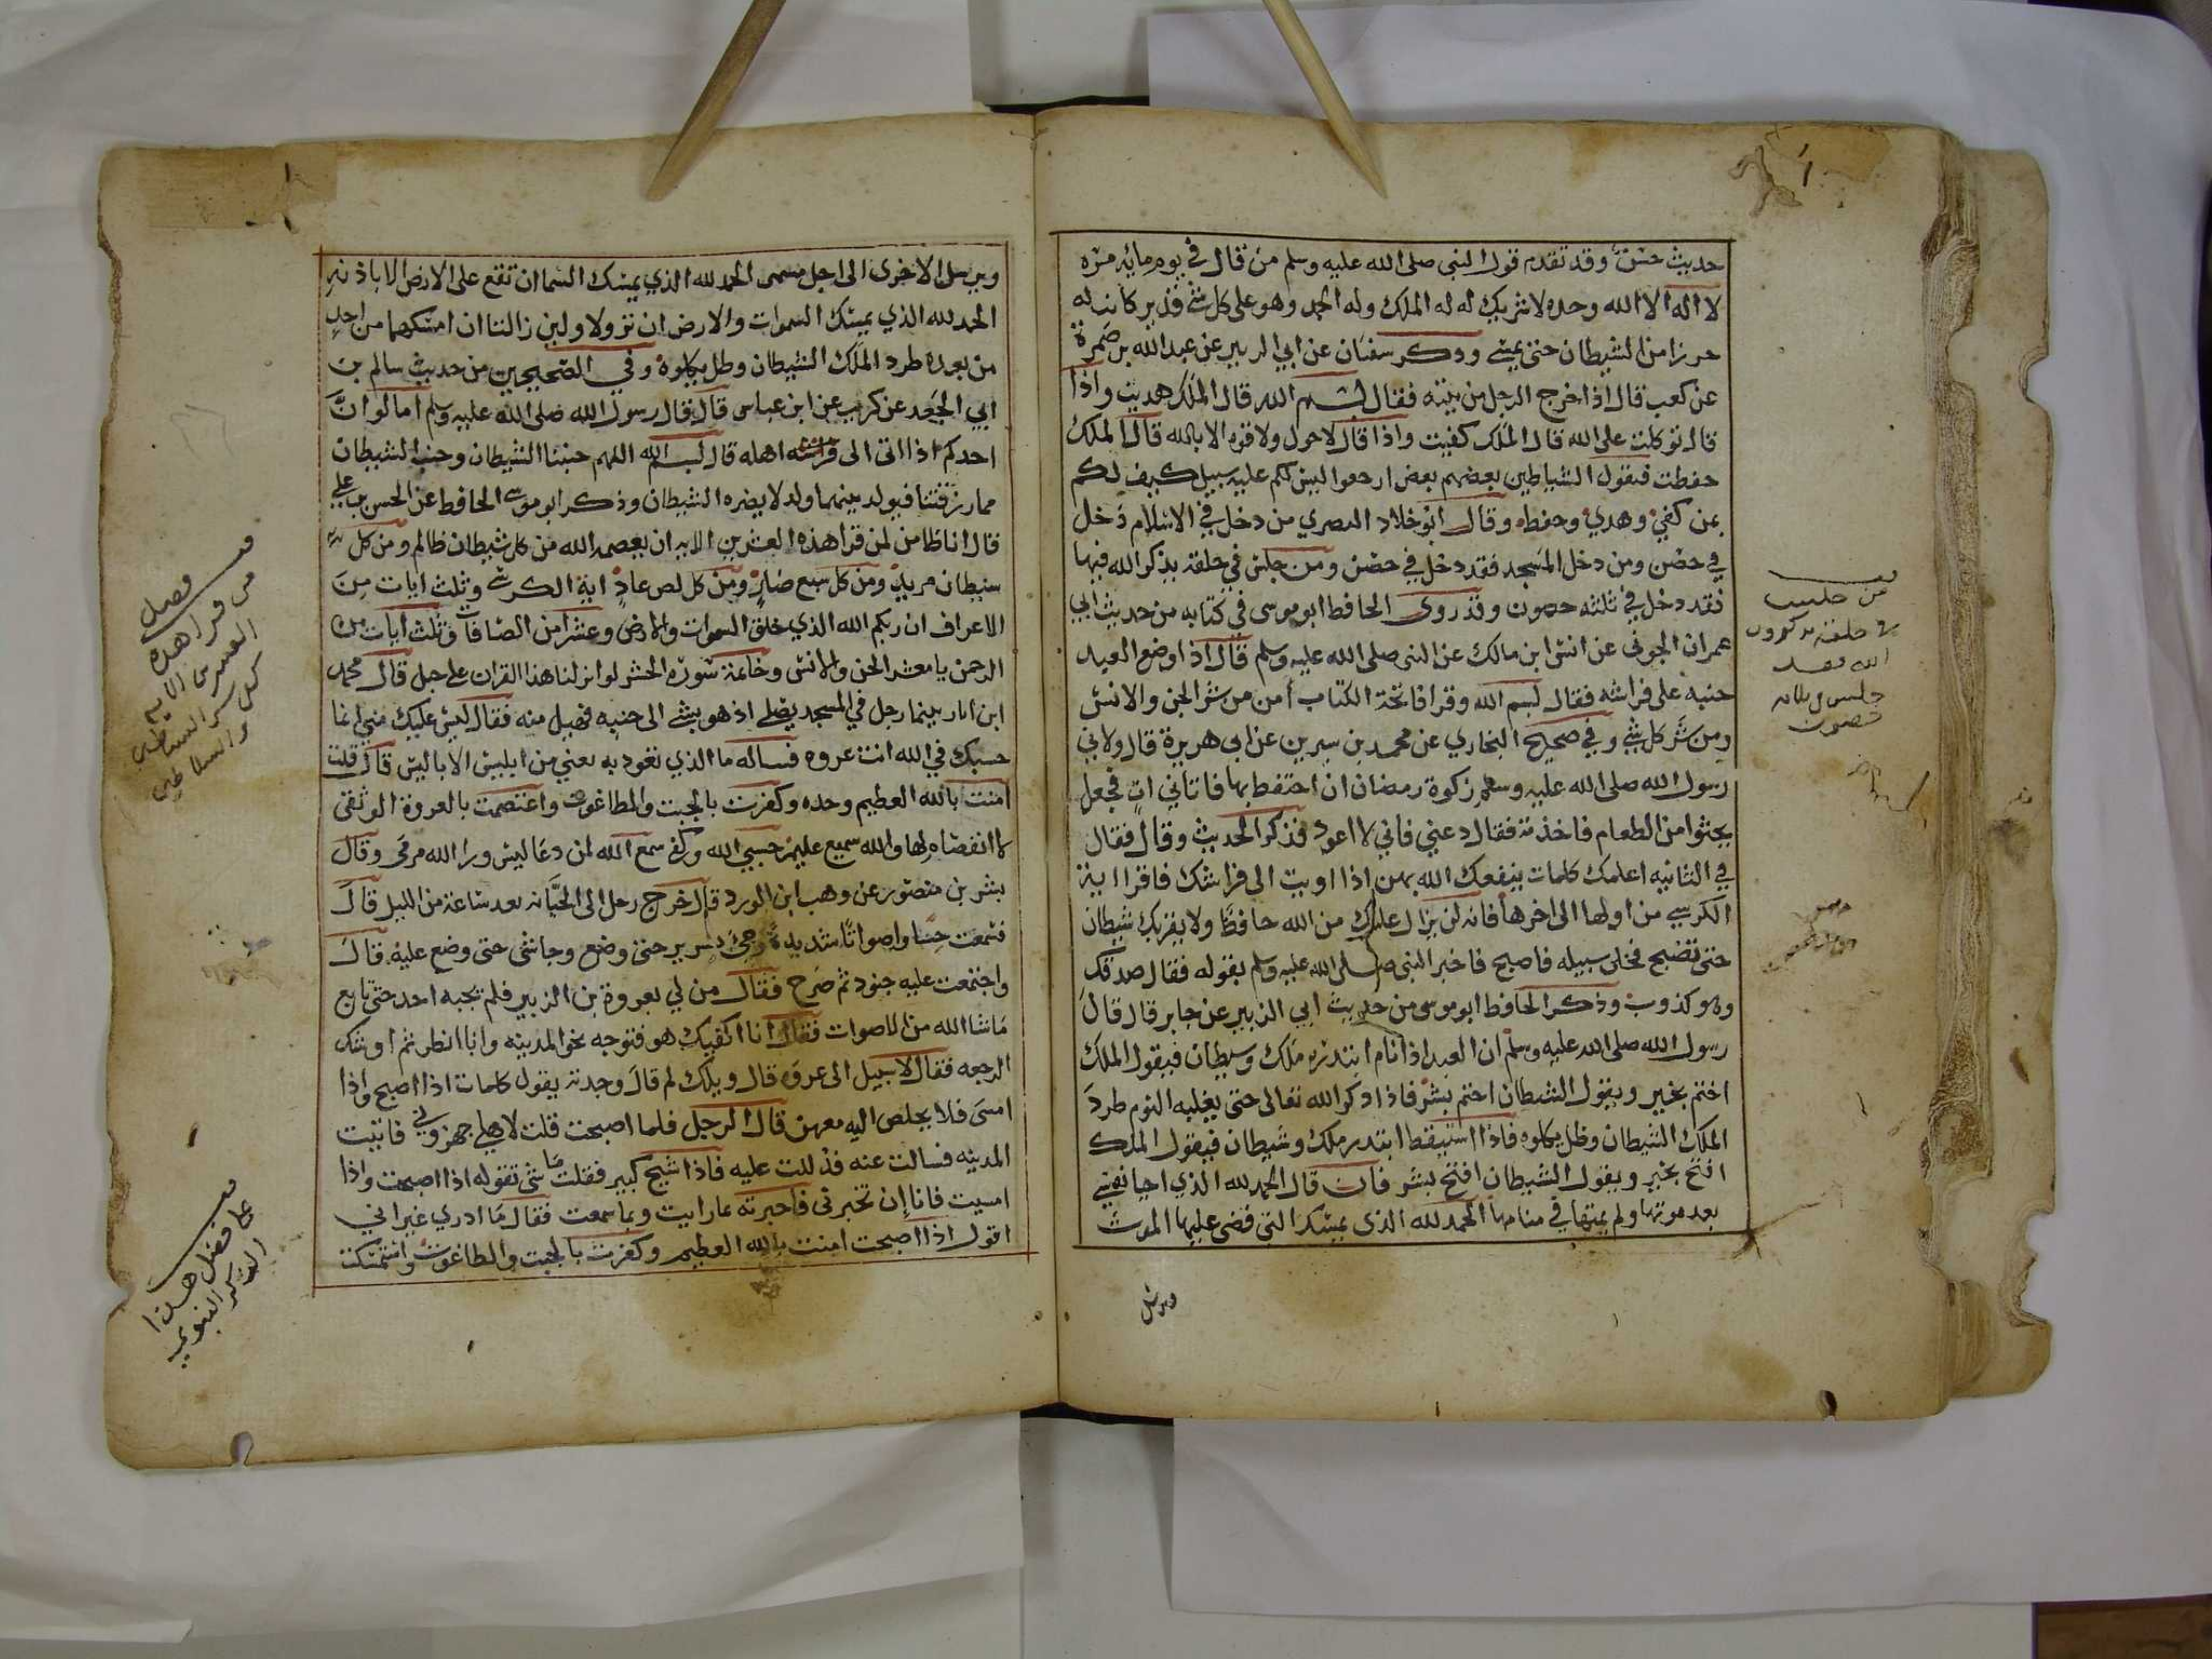 حديث حسن وقد تقدم قول النبي صلى الله عليه وسلم من قال في يوم مايه مره
لا اله الا الله وحده لا شريك له له الملك وله الحمد وهو على كل شي قدير كانت له
حرزا من الشيطان حتى يمسي وذكر سفيان عن ابي الزبير عن عبد الله بن ضمرة
عن كعب قال اذا خرج الرجل من بيته فقال بسم الله قال الملك هديت واذا
قال توكلت على الله قال الملك كفيت واذا قال لا حول ولا قوه الا بالله قال الملك
حفظت فيقول الشياطين بعضهم بعض ارجعوا ليس لكم عليه سبيل كيف لكم
بمن كفي وهدي وحفظ وقال ابو خلاد المصري من دخل في الاسلام دخل
في حصن ومن دخل المسجد فقد دخل في حصن ومن جلس في حلقه يذكر الله فيها
فقد دخل في ثلثه حصون وقد روى الحافظ ابو موسى في كتابه من حديث ابي
عمران الجوني عن انس ابن مالك عن النبي صلى الله عليه وسلم قال اذا وضع العبد
جنبه على فراشه فقال بسم الله وقرا فاتحة الكتاب أمن من شر الجن والانس
ومن شر كل شي وفي صحيح البخاري عن محمد بن سيرين عن ابي هريرة قال ولاني
رسول الله صلى الله عليه وسلم زكوة رمضان ان احتفظ بها فاتاني ات فجعل
يحثوا من الطعام فاخذته فقال دعني فاني لا اعود فذكر الحديث وقال فقال
في الثانيه اعلمك كلمات ينفعك الله بهن اذا اويت الى فراشك فاقرا اية
الكرسي من اولها الى اخرها فانه لن يزال عليك من الله حافظا ولا يقربك شيطان
حتى تصبح فخلى سبيله فاصبح فاخبر النبي صلى الله عليه وسلم بقوله فقال صدقك
وهو كذوب وذكر الحافظ ابو موسى من حديث ابي الزبير عن جابر قال قال
رسول الله صلى الله عليه وسلم ان العبد اذا نام ابتدره ملك وشيطان فيقول الملك
اختم بخير ويقول الشيطان اختم بشر فاذا ذكر الله تعالى حتى يغلبه النوم طرد
الملك الشيطان وظل يكلوه فاذا استيقظ ابتدره ملك وشيطان فيقول الملك
افتح بخير ويقول الشيطان افتح بشر فان قال الحمد لله الذي احيا نفسي
بعد موتها ولم يمتها في منامها الحمد لله الذي يمسك التي قضى عليها الموت
ويرسل
من جلس
في حلقه يذكرون
الله فقد
جلس في ثلاثه
حصون
ويرسل الاخرى الى اجل مسمى الحمد لله الذي يمسك السما ان تقع على الارض الا باذنه
الحمد لله الذي يمسك السموات والارض ان تزولا ولين زالتا ان امسكهما من احد
من بعده طرد الملك الشيطان وظل يكلوه وفي الصحيحين من حديث سالم بن
ابي الجعد عن كريب عن ابن عباس قال قال رسول الله صلى الله عليه وسلم اما لو ان
احدكم اذا اتى الى فراشه اهله قال بسم الله اللهم جنبنا الشيطان وجنب الشيطان
مما رزقتنا فيولد بينهما ولد لا يضره الشيطان وذكر ابو موسى الحافظ عن الحسن بن علي
قال انا ضامن لمن قرا هذه العشرين الايه ان يعصمه الله من كل شيطان ظالم ومن كل
شيطان مريد ومن كل سبع ضار ومن كل لص عاد اية الكرسي وثلث ايات من
الاعراف ان ربكم الله الذي خلق السموات والارض وعشرا من الصافات وثلث ايات من
الرحمن يا معشر الجن والانس وخاتمة سورة الحشر لو انزلنا هذا القران على جبل قال محمد
ابن ابان بينما رجل في المسجد يصلي اذ هو بشي الى جنبه فجفل منه فقال ليس عليك مني انما
جيتك في الله ائت عروه فساله ما الذي تتعوذ به يعني من ابليس الاباليس قال قلت
امنت بالله العظيم وحده وكفرت بالجبت والطاغوت واعتصمت بالعروة الوثقى
لا انفصام لها والله سميع عليم حسبي الله وكفى سمع الله لمن دعا ليس ورا الله مرمى وقال
بشر بن منصور عن وهب ابن الورد قال خرج رجل الى الجبانه بعد ساعة من الليل قال
فسمعت حسا واصواتا شديدة وجئ بسرير حتى وضع وجا شي حتى وضع عليه قال
واجتمعت عليه جنود ثم صرح فقال من لي بعروة بن الزبير فلم يجبه احد حتى تابع
ما شا الله من الاصوات فقال انا اكفيك هو فتوجه نحو المدينه وانا انظر ثم اوشك
الرجعه فقال لا سبيل الى عروه قال ويلك لم قال وجدته يقول كلمات اذا اصبح واذا
امسى فلا يخلص اليه معهن قال الرجل فلما اصبحت قلت لاهلي جهزوني فاتيت
المدينه فسالت عنه فدللت عليه فاذا شيخ كبير فقلت ما شي تقوله اذا اصبحت واذا
امسيت فانا إن تخبرني فاخبرته بما رايت وبما سمعت فقال ما ادري غير اني
اقول اذا اصبحت امنت بالله العظيم وكفرت بالجبت والطاغوت واستمسكت
فصل
من قرا هذه
العشرين الايه
فضل هذا
الذكر النبوي